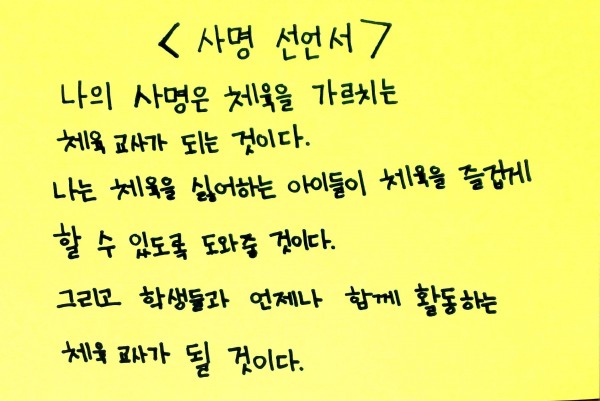 < 사명 선언서 >
나의 사명은 체육을 가르치는
체육 교사가 되는 것이다.
나는 체육을 싫어하는 아이들이 체육을 즐겁게
할 수 있도록 도와줄 것이다.
그리고 학생들과 언제나 함께 활동하는
체육 교사가 될 것이다.